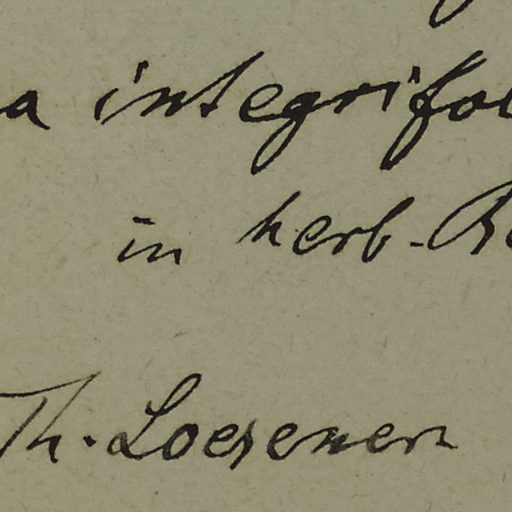 a integrifol
in herb. Be
Th. Loesener